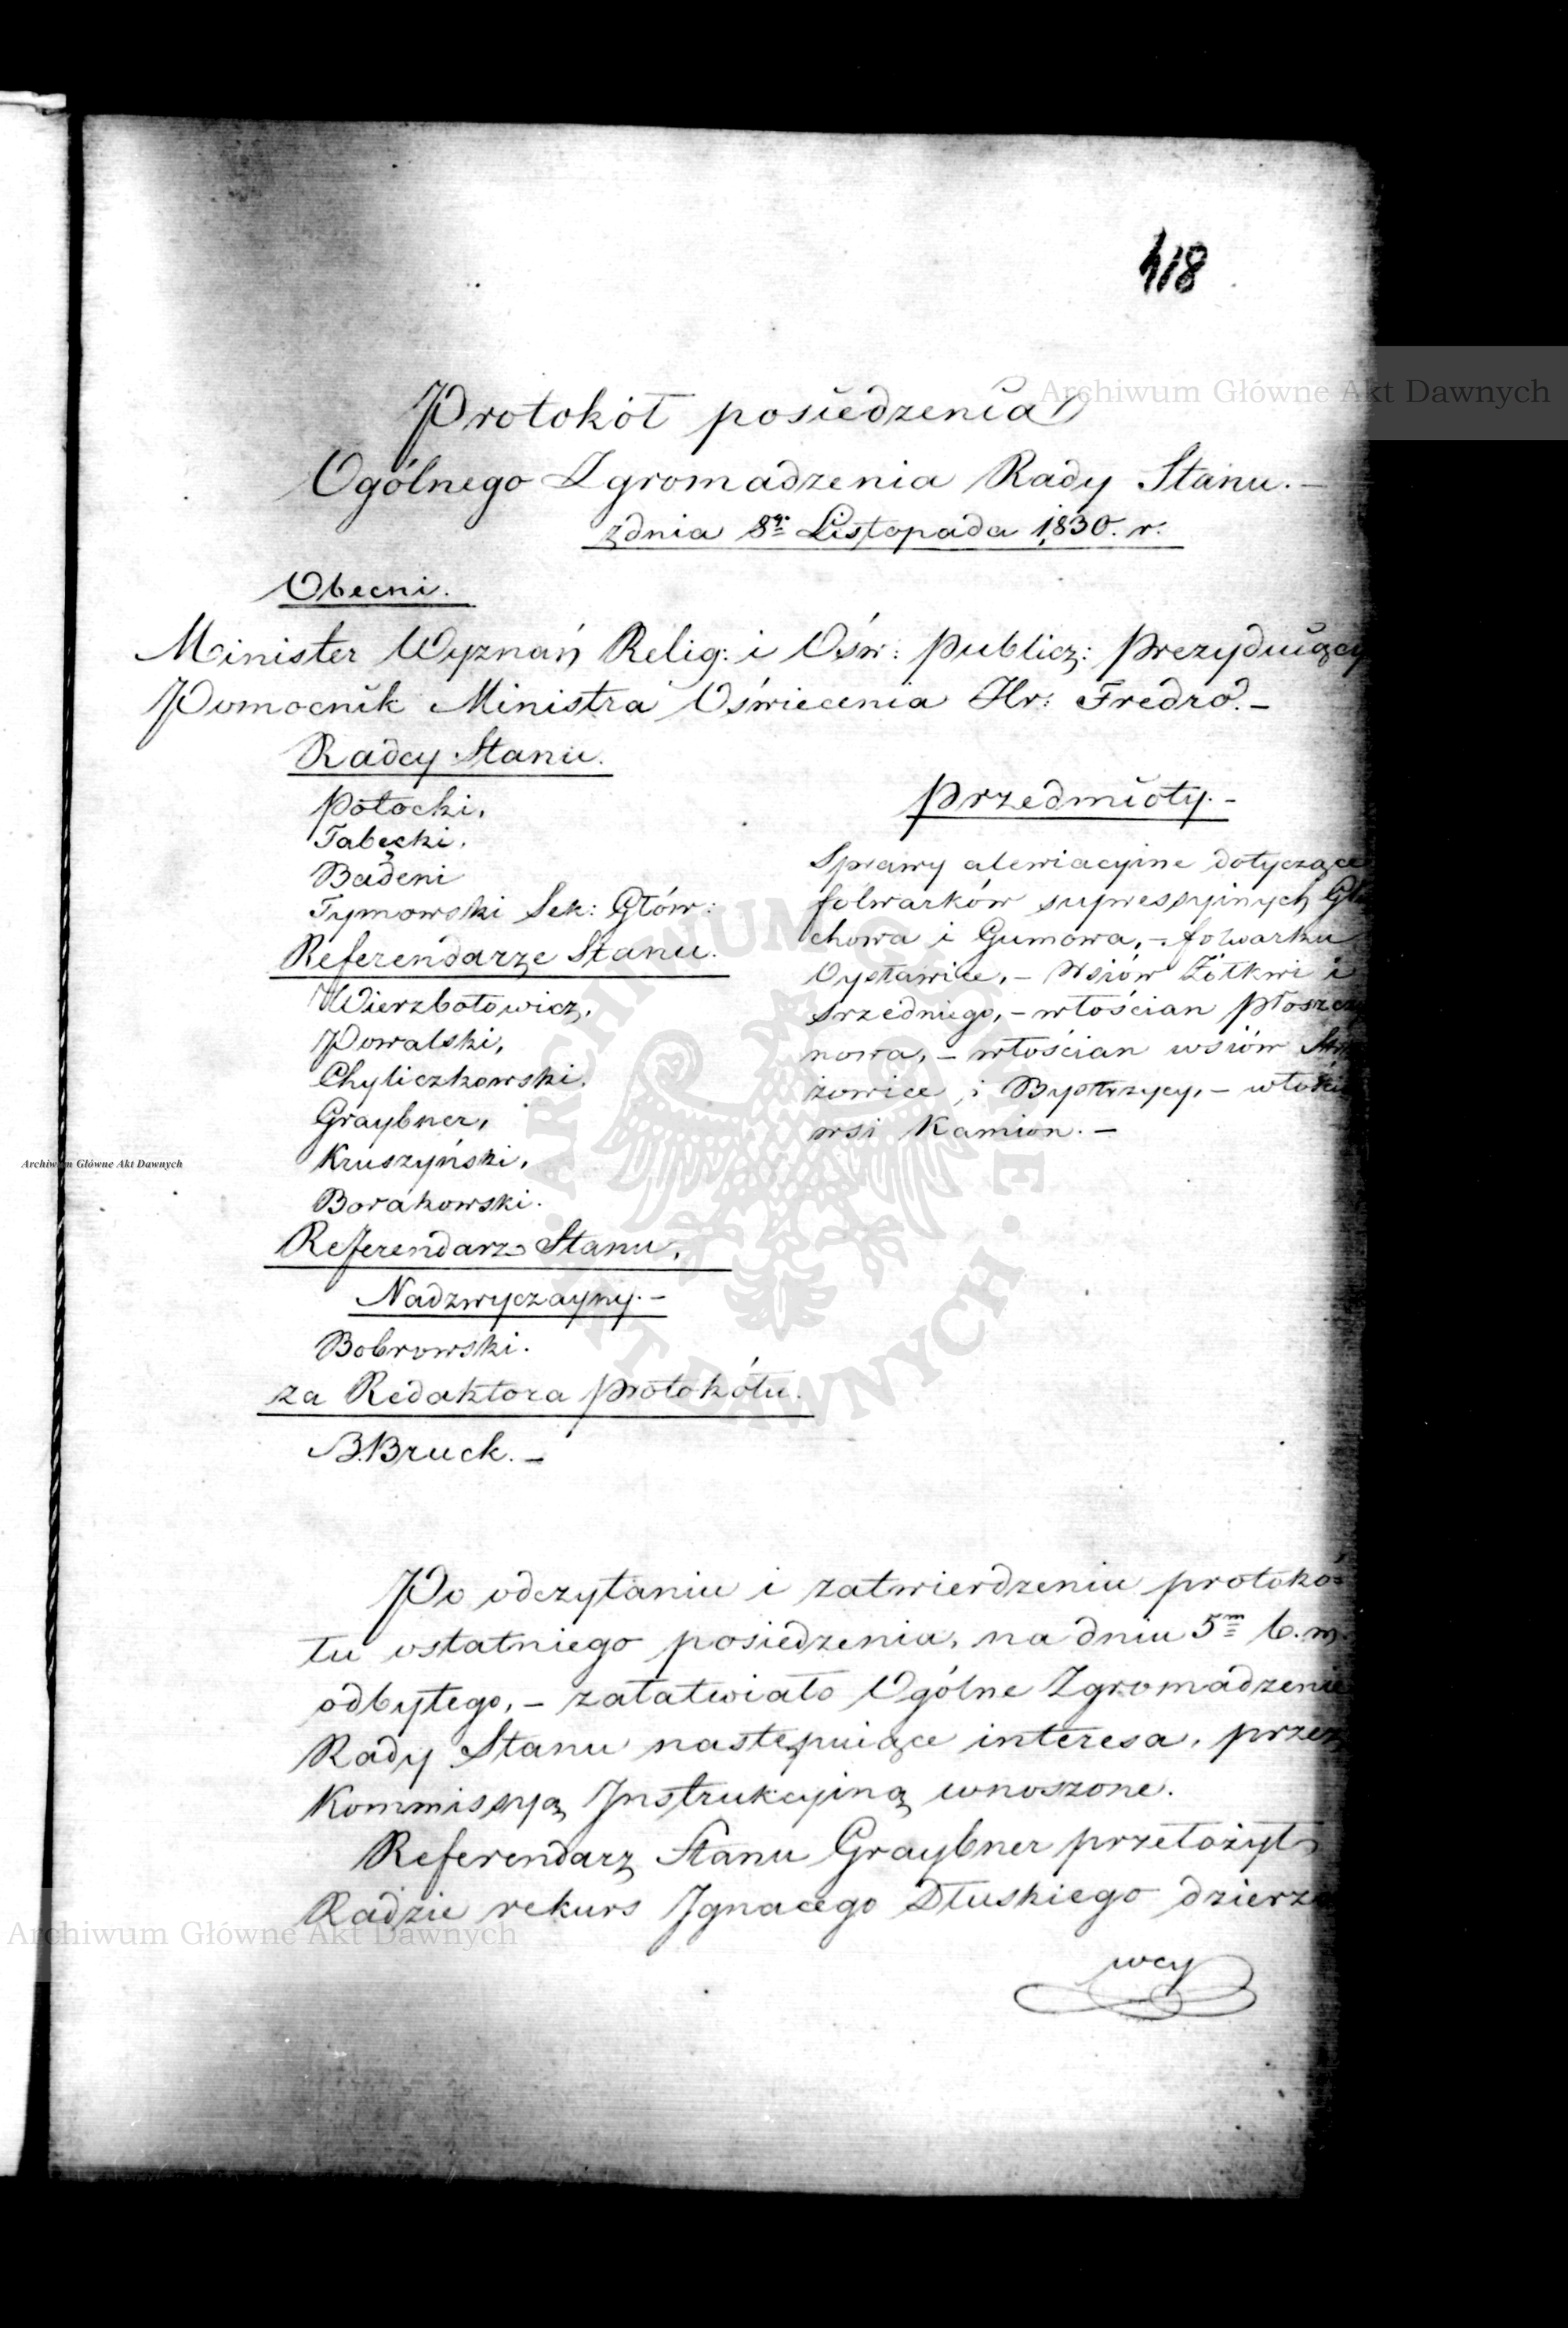 418
Protokół posiedzenia
Ogólnego Zgromadzenia Rady Stanu. –
z dnia 8go Listopada 1830. r.
Obecni.
Minister Wyznań Relig: i Ośw: Publicz: Prezyduiący
Pomocnik Ministra Oświecenia Hr: Fredro. –
Radcy Stanu.
Potocki,
Tabęcki,
Badeni
Tymowski Sek: Głów:
Referendarze Stanu.
Wierzbołowicz,
Powalski,
Chyliczkowski,
Graybner,
Kruszyński,
Borakowski.
Referendarz Stanu,
Nadzwyczayny. –
Bobrowski.
za Redaktora protokółu.
B. Bruck. –
Przedmioty. –
Sprawy alewiacyine dotyczące
folwarków supressyinych
chowa i Gumowa, – folwarku
– Wsiów Żółkwi i
– włościan
nowa, – włościan wsiów
żowice i Bystrzycy, –
wsi Kamion. –
Po odczytaniu i zatwierdzeniu protokó-
łu ostatniego posiedzenia, na dniu 5m b. m.
odbytego, – załatwiało Ogólne Zgromadzenie
Rady Stanu następuiące interesa, przez
Kommissyą Jnstrukcyiną wnoszone.
Referendarz Stanu Graybner przełożył
Radzie rekurs Jgnacego Dłuskiego dzierża
wcy
Archiwum Główne Akt Dawnych
Archiwum Główne Akt Dawnych
Archiwum Główne Akt Dawnych
ARCHIWUM GŁÓWNE AKT DAWNYCH